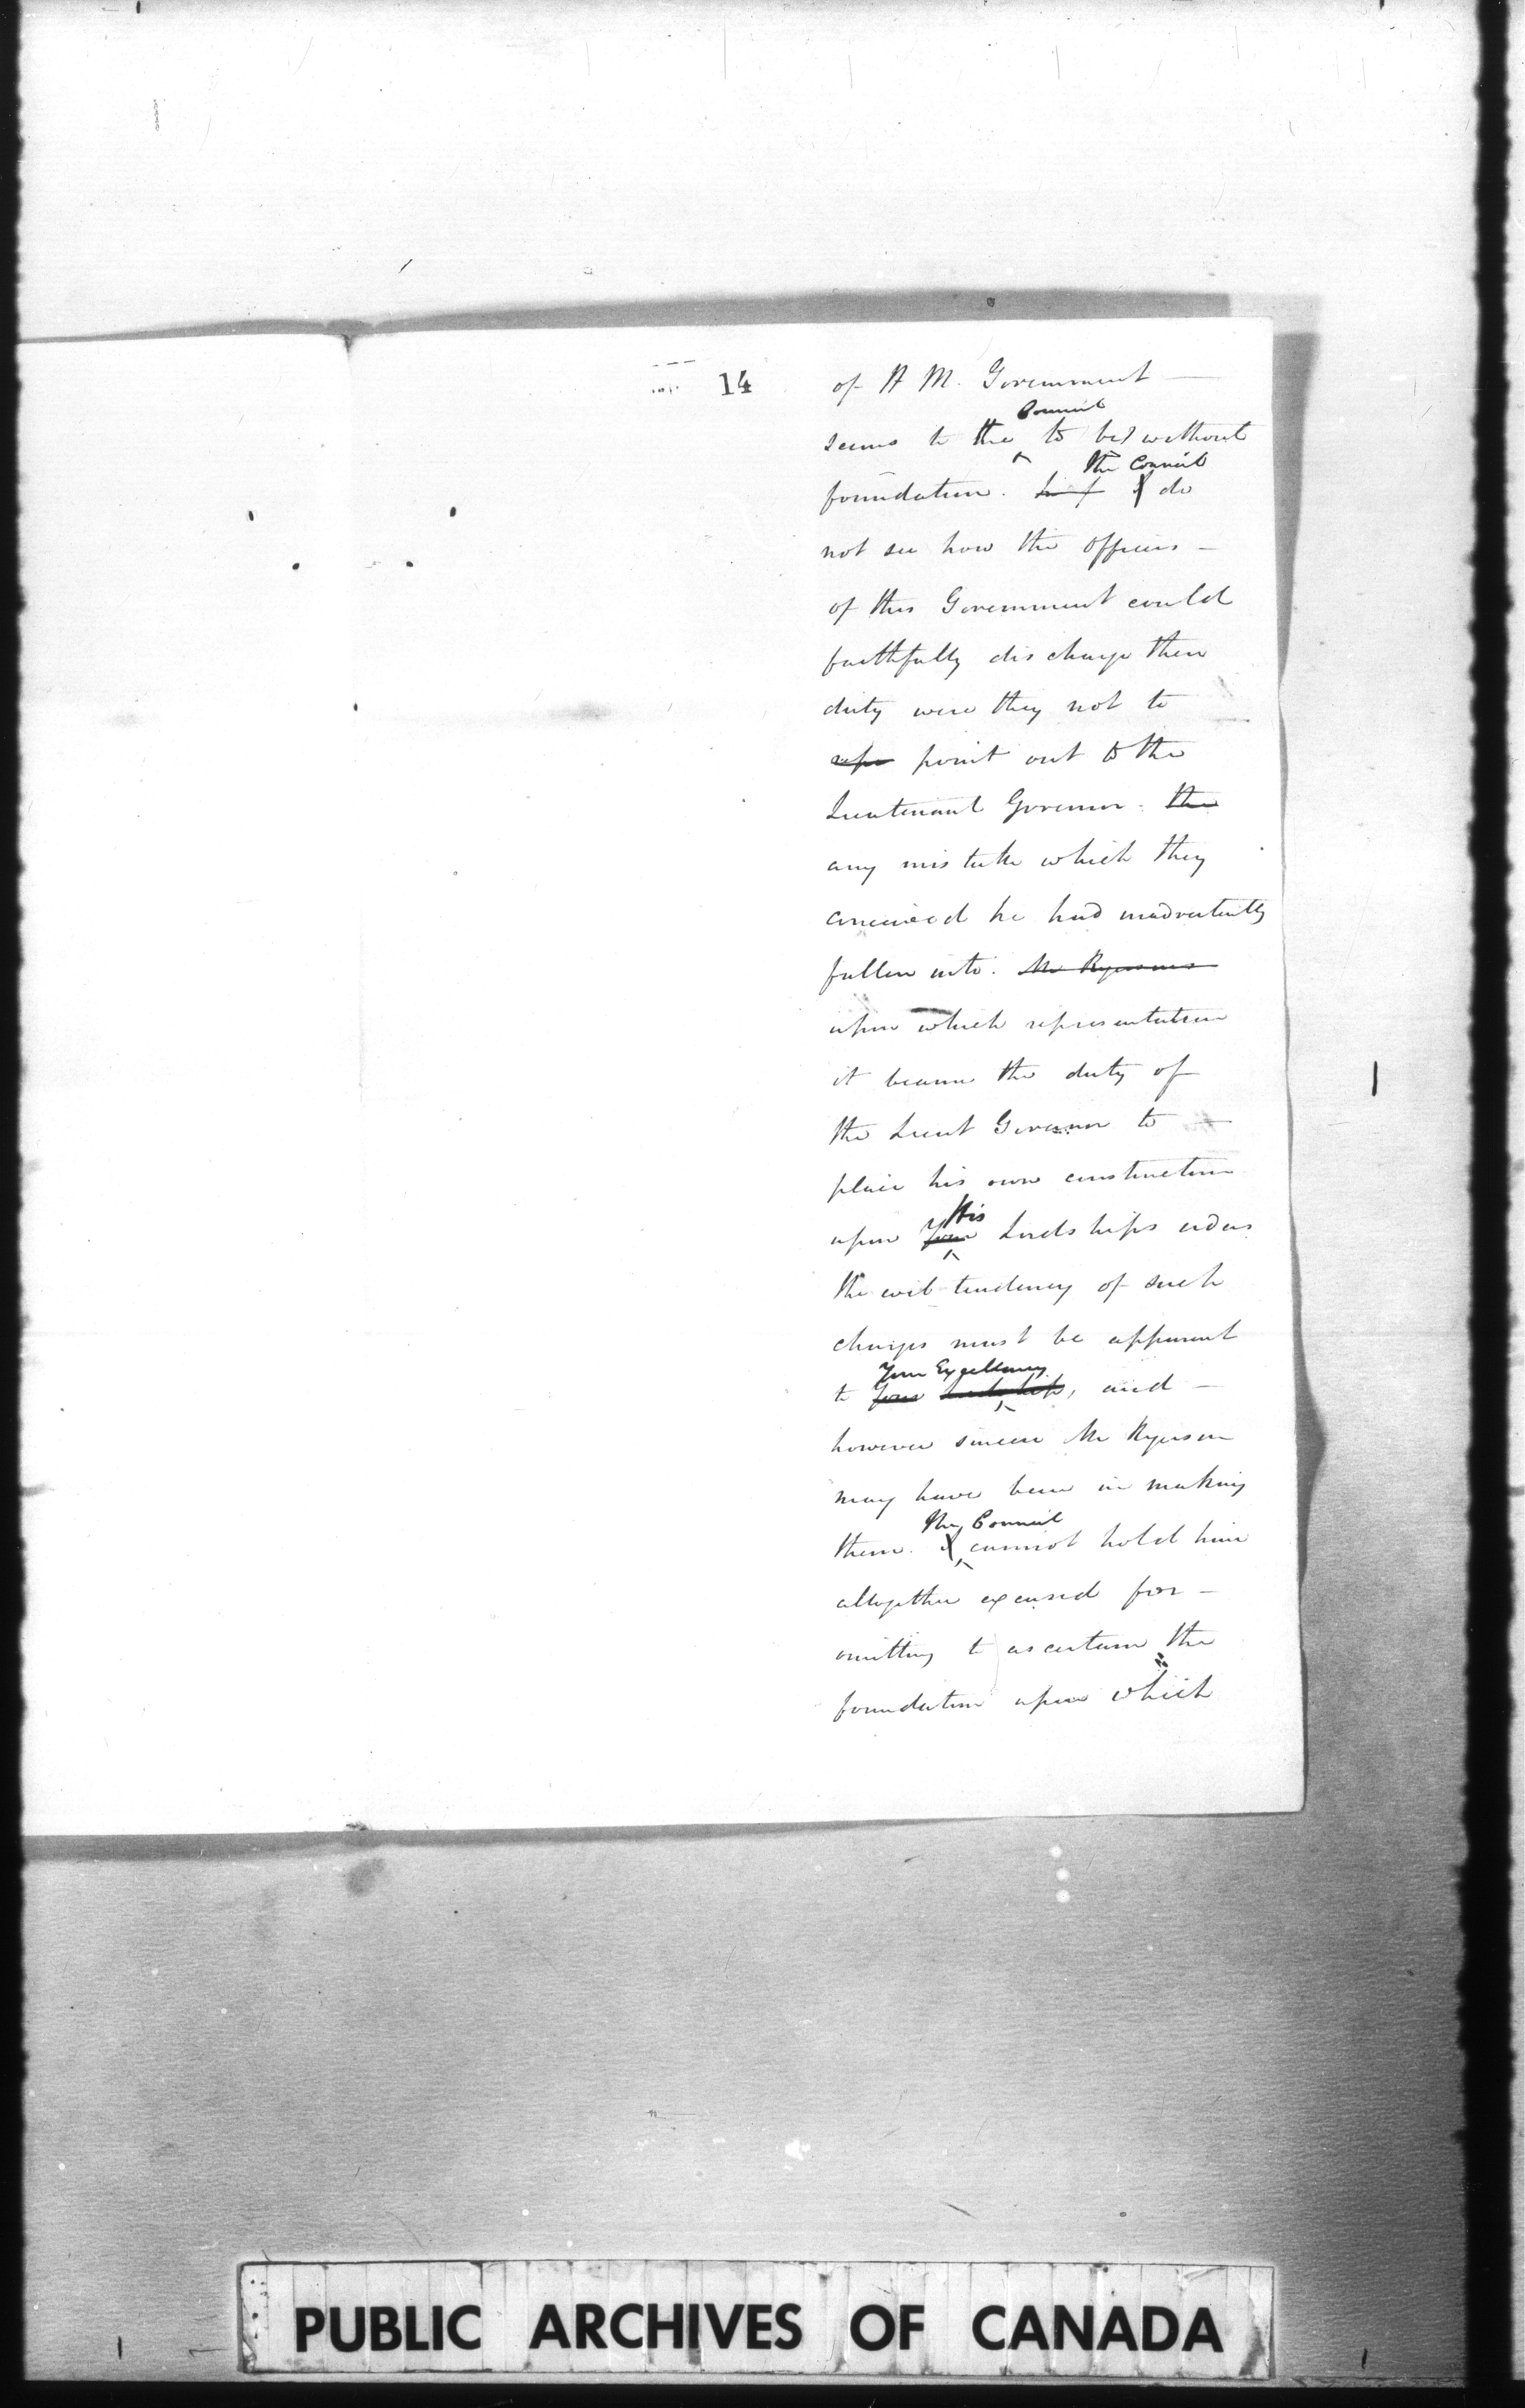 14
of H M. Government —
Council
seems to the to be without
the Council
foundation. I do
not see how the officers —
of this Government could
faithfully discharge their
duty were they not to
repr point out to the
Lieutenant Governor. the
any mistake which they
conceived he had inadvertently
fallen into. Mr Ryersons
upon which representation
it became the duty of
the Lieut Governor to —
place his own construction
His
upon Your Lordships orders
the evil tendency of such
charges must be apparent
Your Excellency
to Your Lordship, and —
however sincere Mr Ryerson
may have been in making
the Council
them. I cannot hold him
altogether excused for —
omitting to ascertain the
foundation upon which
PUBLIC ARCHIVES OF CANADA